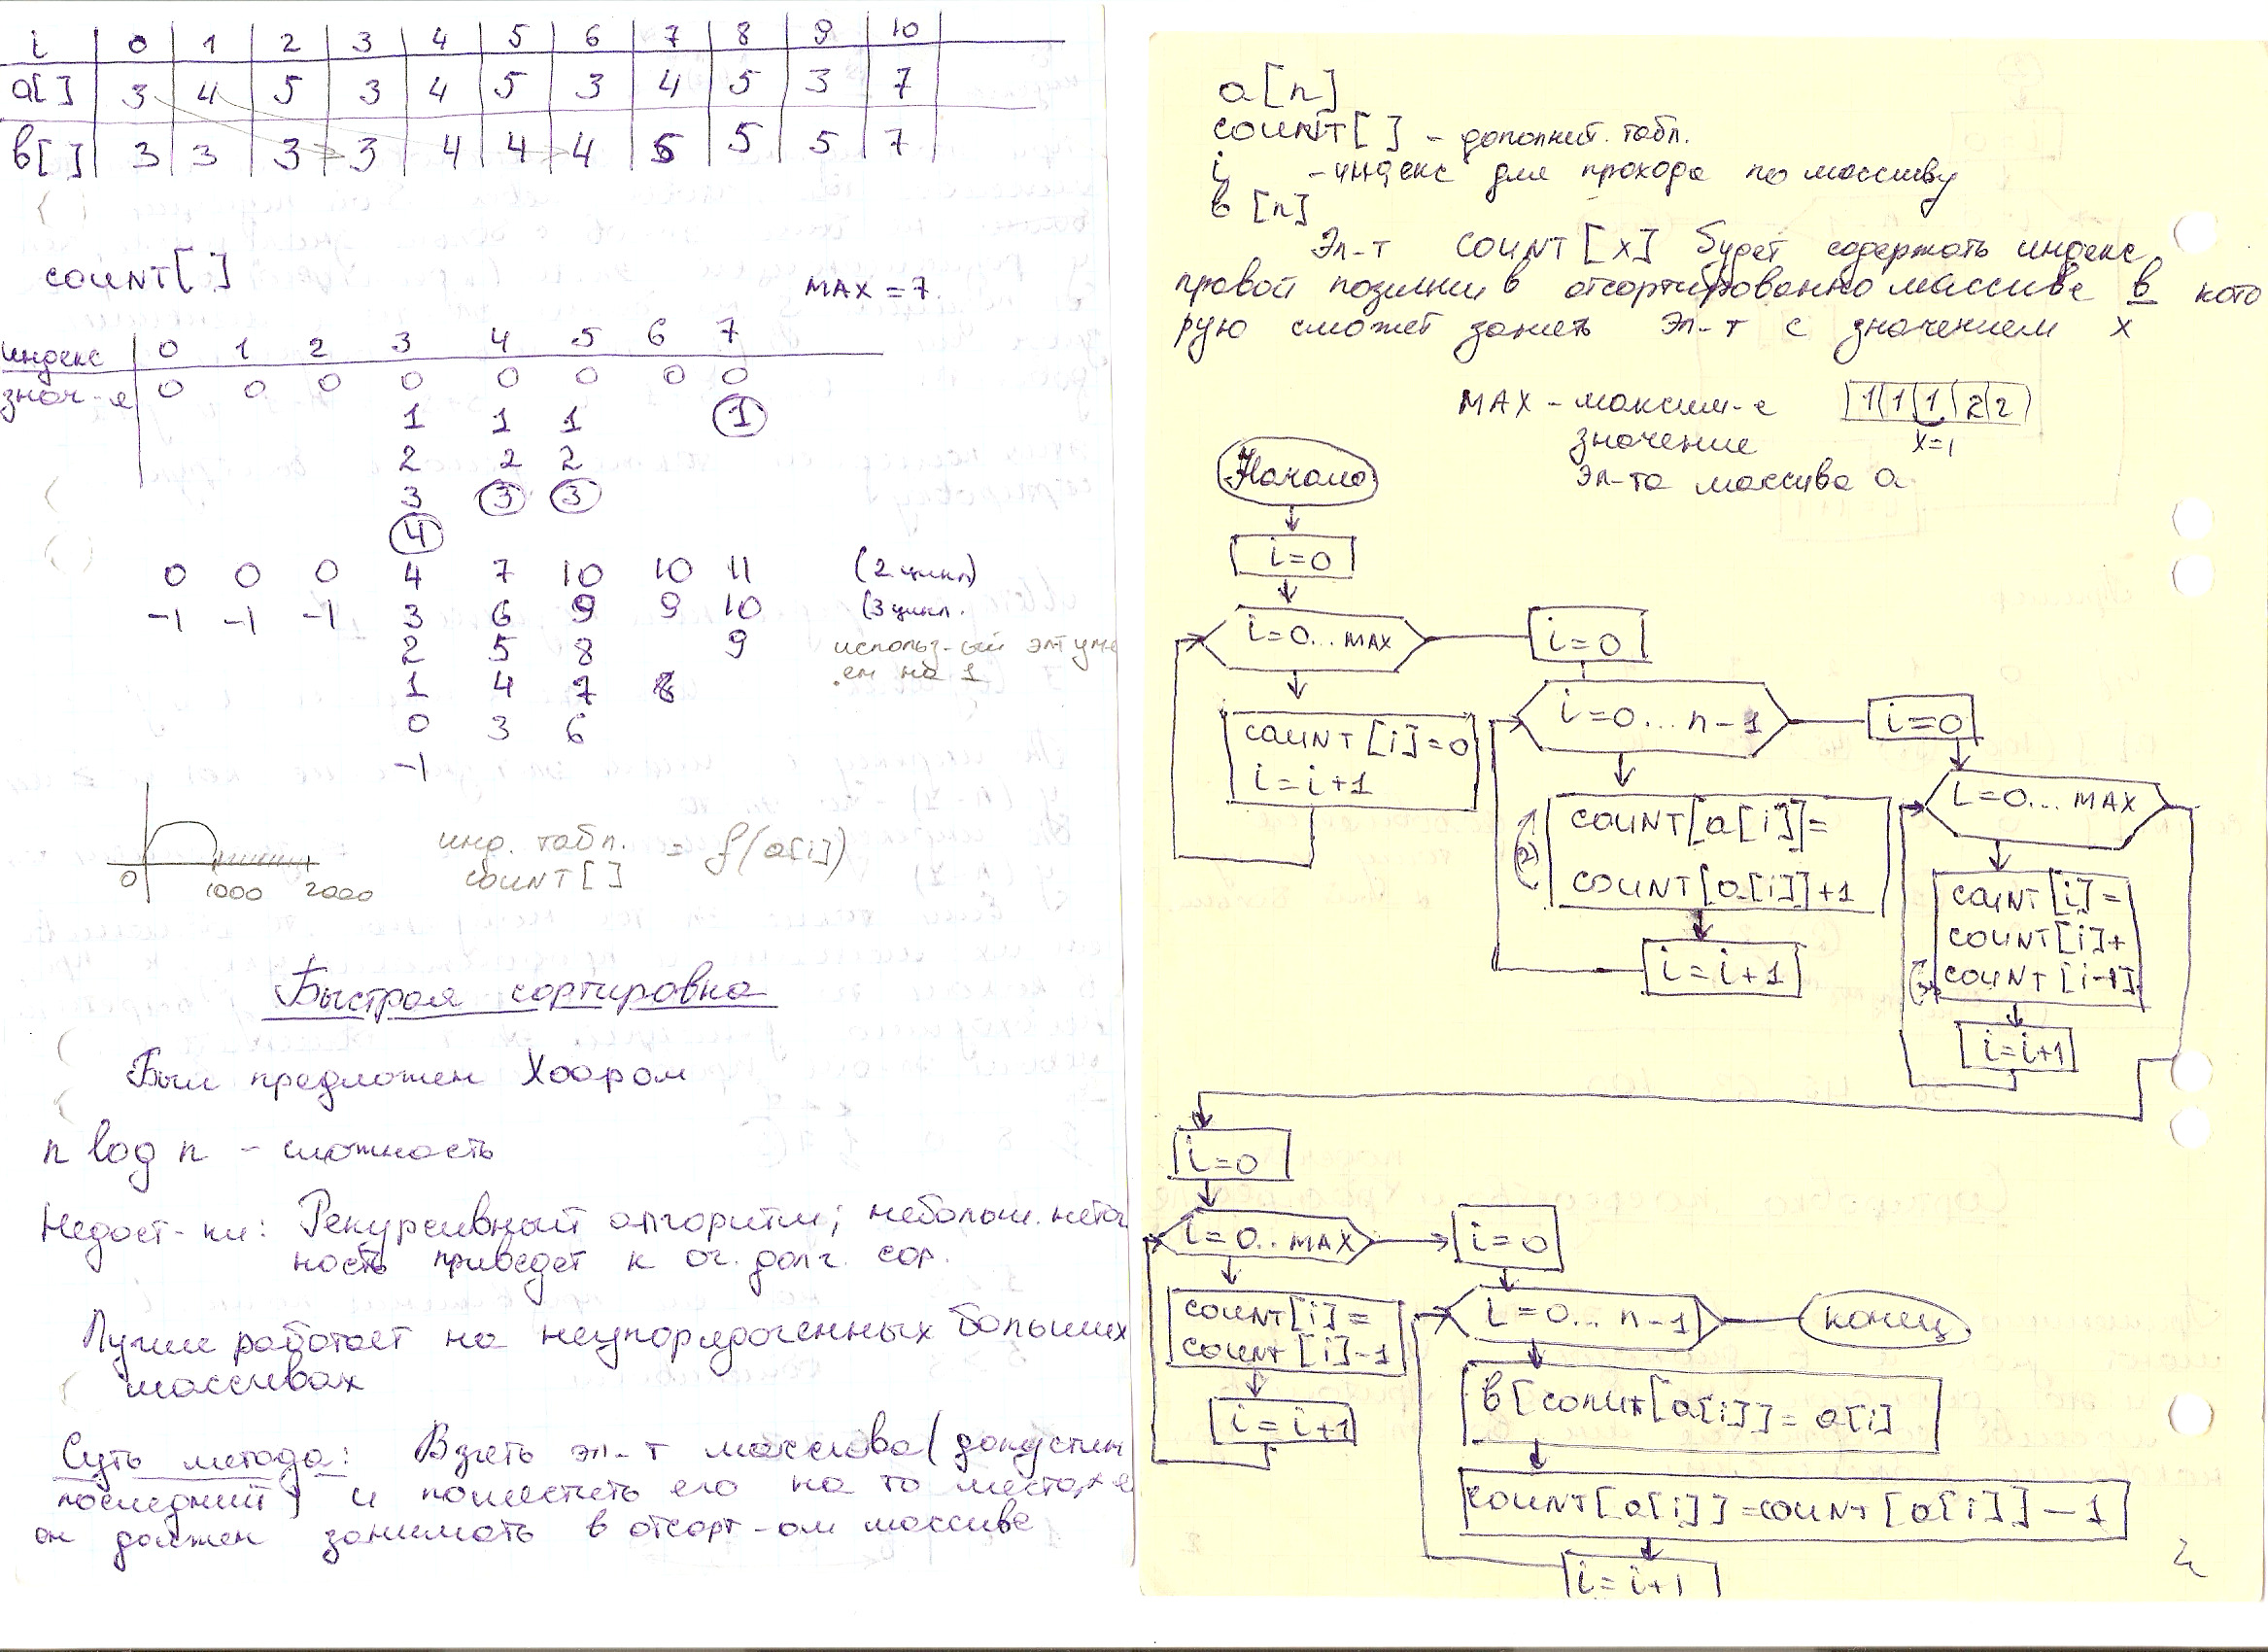 i 0 1 2 3 4 5 6 7 8 9 10
a[] 3 4 5 3 4 5 3 4 5 3 7
в[] 3 3 3 3 4 4 4 5 5 5 7
COUNT[]
MAX = 7.
индекс 0 1 2 3 4 5 6 7
знач-е 0 0 0 0 0 0 0 0
1 1 1 1
2 2 2
3 3 3
4
0 0 0 4 7 10 10 11 (2 цикл)
-1 -1 -1 3 6 9 9 10 (3 цикл.
2 5 8 9 использ-ый эл ум
1 4 7 8 ем на 1
0 3 6
-1
0 1000 2000
инд. табл. = f(a[i])
COUNT[]
Быстрая сортировка
Был предложен Хоаром
n log n - сложность
Недост-ки: Рекурсивный алгоритм; небольш. неточ
ность приведет к оч. долг. сор.
Лучше работает на неупорядоченных больших
массивах
Суть метода: Взять эл-т массива (допустим
последний) и поместить его на то место, к-е
он должен занимать в отсорт-ом массиве
a[n]
COUNT[] - дополнит. табл.
i - индекс для прохода по массиву
в[n]
Эл-т COUNT[x] будет содержать индекс
правой позиции в отсортированно массиве в кото
рую сможет занять эл-т с значением x
MAX - максим-е 1 1 1 2 2
значение x=1
эл-та массива a
Начало
i=0
i=0...MAX
COUNT[i]=0
i=i+1
i=0
i=0...n-1
(2)
COUNT[a[i]=
COUNT[a[i]]+1
i=i+1
i=0
i=0...MAX
COUNT[i]=
COUNT[i]+
COUNT[i-1]
i=i+1
i=0
i=0..MAX
COUNT[i]=
COUNT[i]-1
i=i+1
i=0
i=0...n-1
конец
в[count[a[i]]=a[i]
COUNT[a[i]]=COUNT[a[i]]-1
i=i+1